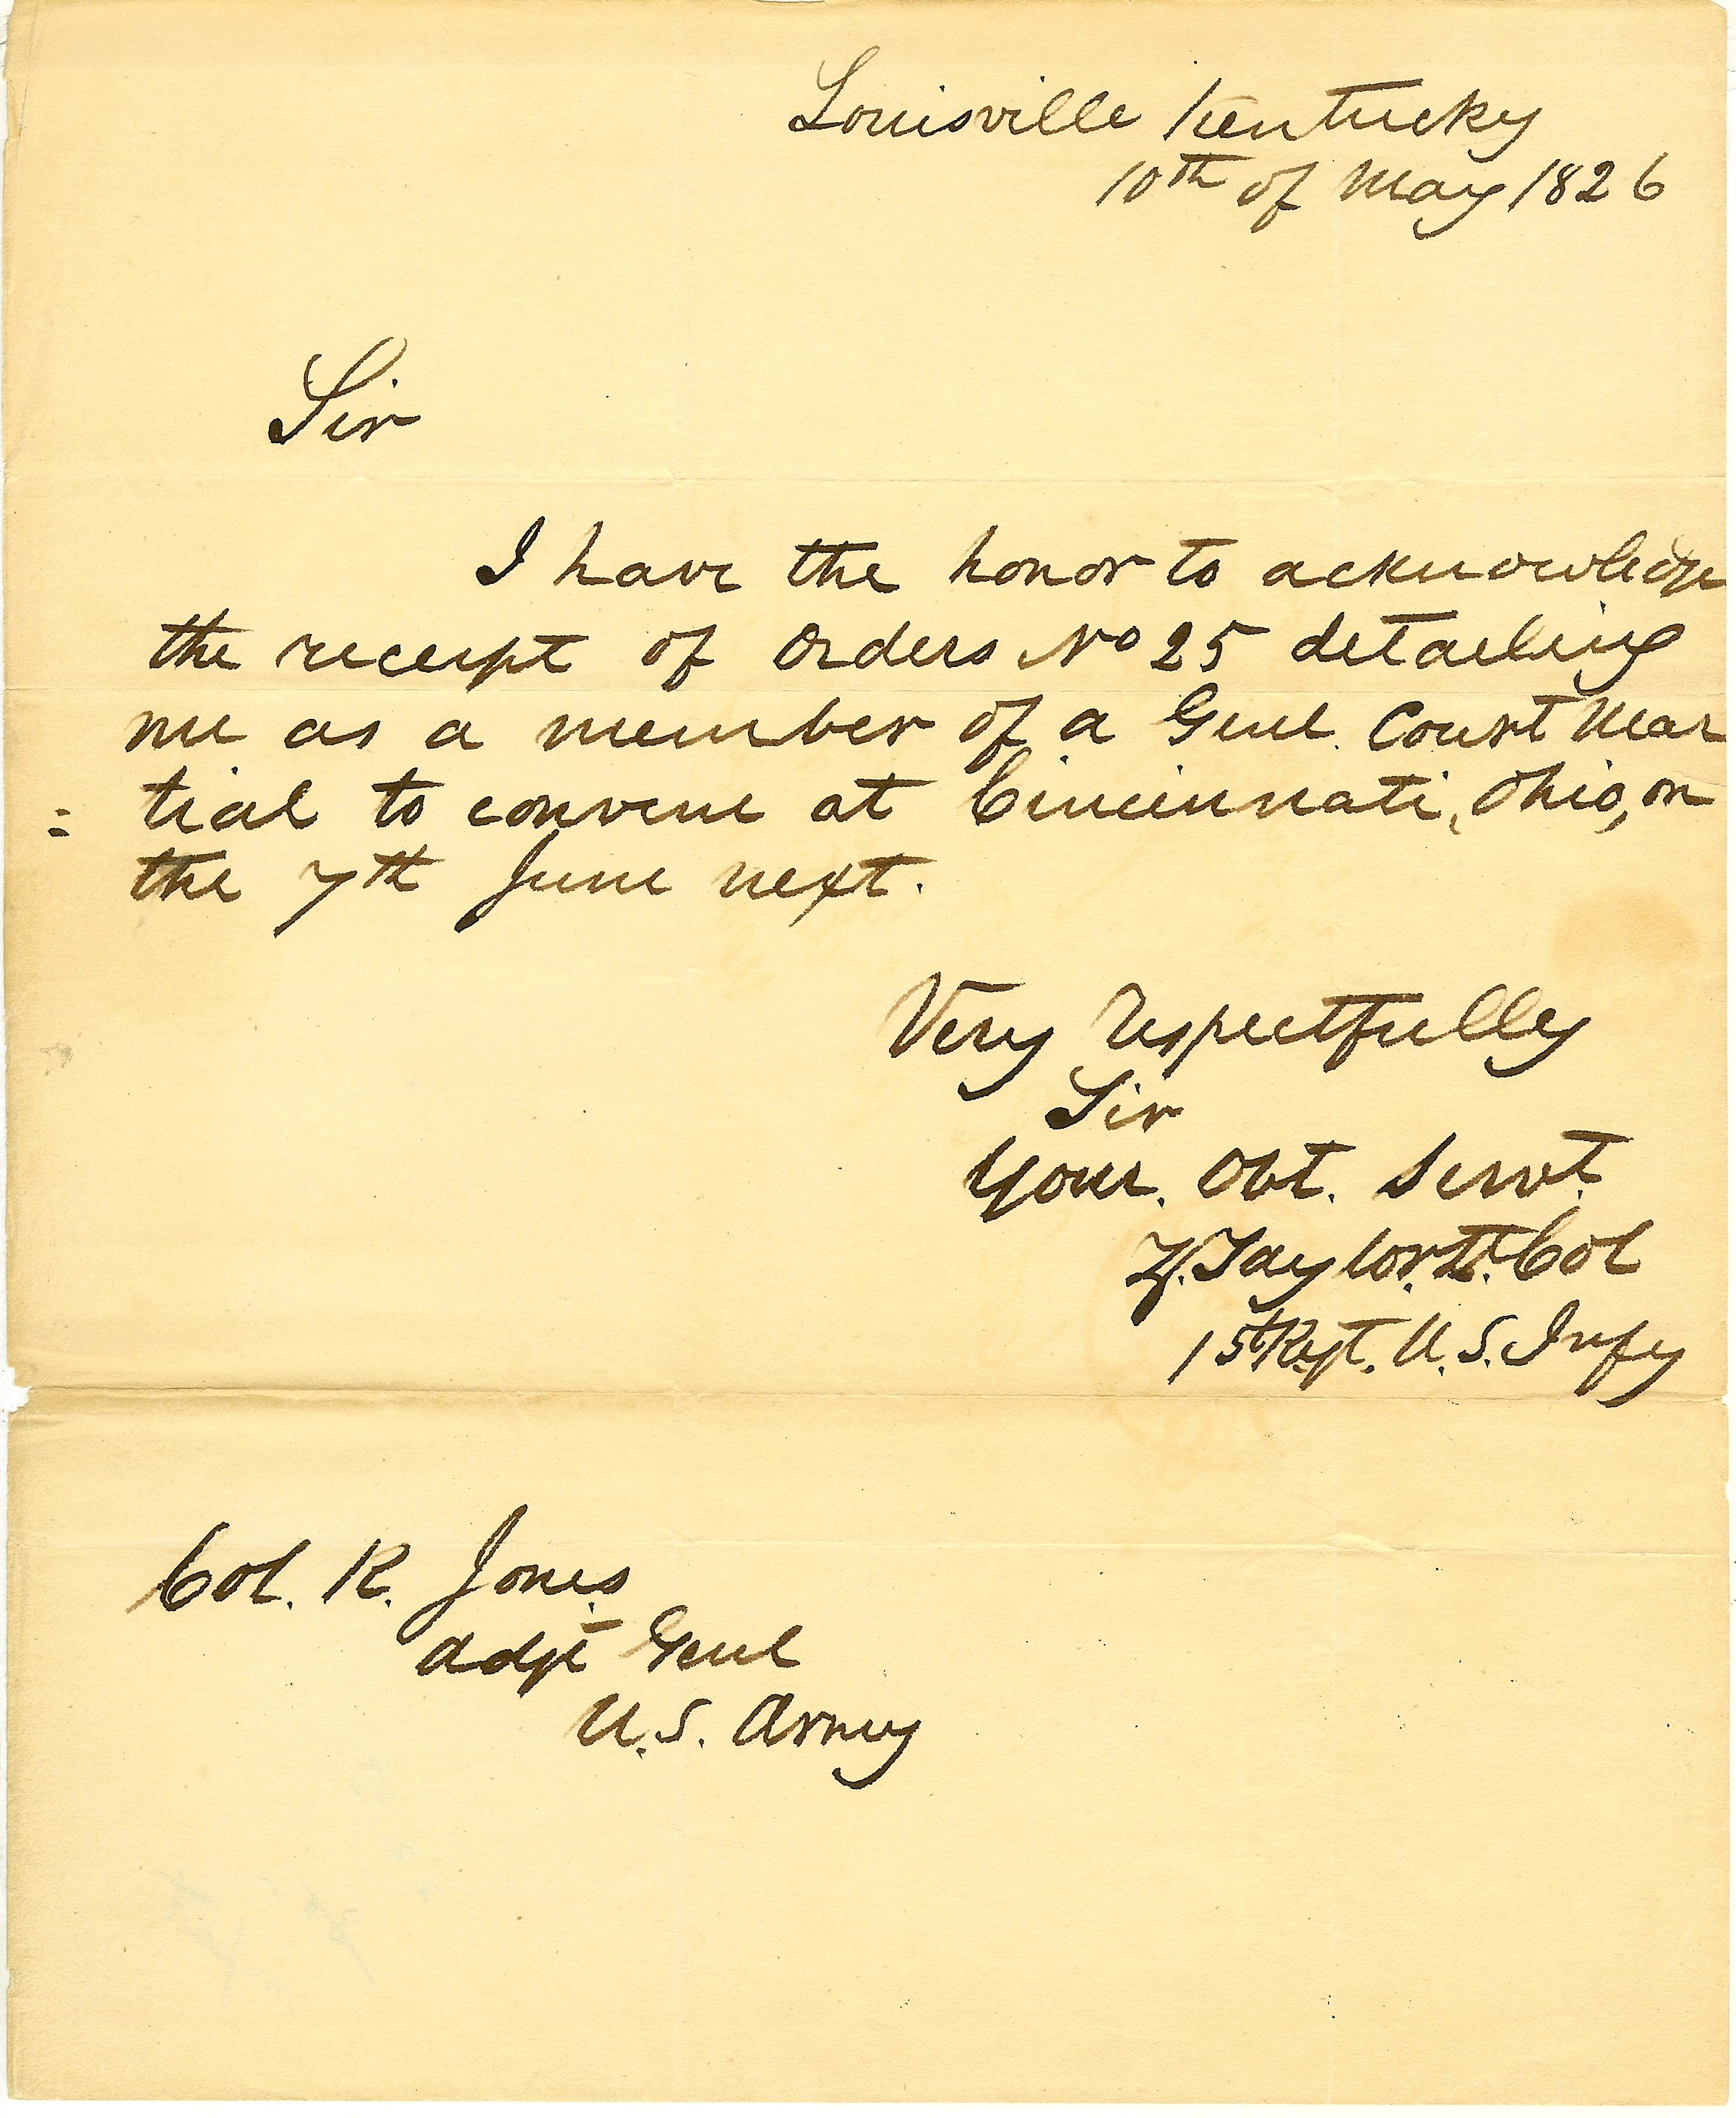 Louisville Kentucky
10th of May 1826
Sir
I have the honor to acknowledge
the receipt of Orders No 25 detailing
me as a member of a Genl. Court Mar
= tial to convene at Cincinnati, Ohio, on
the 7th June next.
Very respectfully
Sir
Your. Obt. Servt.
Z. Taylor. Lt. Col
1st Regt. U.S. Infy
Col. R. Jones
Adjt Genl
U.S. Army